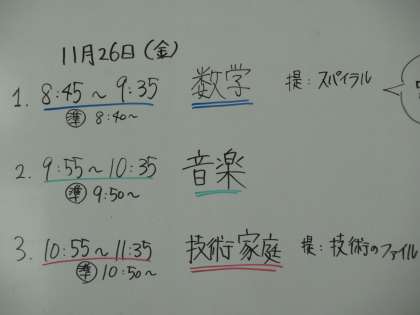 11月26日(金)
1. 8:45～9:35 数学 提:スパイラル
準 8:40～
2. 9:55～10:35 音楽
準 9:50～
3. 10:55～11:35 技術家庭 提:技術のファイル
準 10:50～